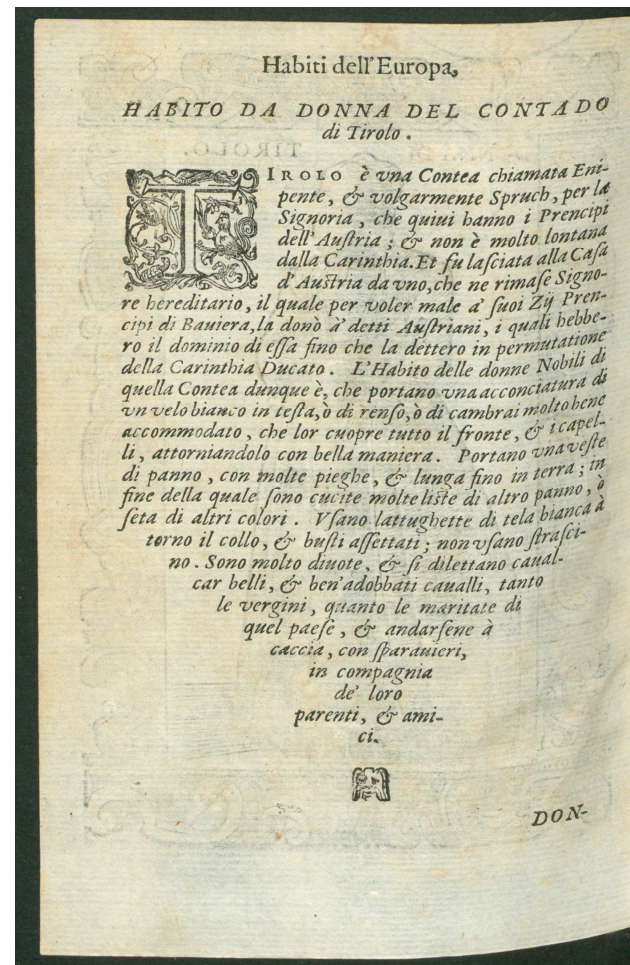 Habiti dell'Europa,
HABITO DA DONNA DEL CONTADO
di Tirolo.
TIROLO è vna Contea chiamata Eni-
pente, & volgarmente Spruch, per la
Signoria, che quiui hanno i Prencipi
dell'Auſtria; & non è molto lontana
dalla Carinthia. Et fu laſciata alla Caſa
d'Auſtria da vno, che ne rimaſe Signo-
re hereditario, il quale per voler male a' ſuoi Zij Pren-
cipi di Bauiera, la donò à detti Auſtriani, i quali hebbe-
ro il dominio di eſſa fino che la dettero in permutatione
della Carinthia Ducato. L'Habito delle donne Nobili di
quella Contea dunque è, che portano vna acconciatura di
vn velo bianco in teſta, ò di renſo, ò di cambrai molto bene
accommodato, che lor cuopre tutto il fronte, & i capel-
li, attorniandolo con bella maniera. Portano vna veſte
di panno, con molte pieghe, & lunga fino in terra; in
fine della quale ſono cucite molte liſte di altro panno, ò
ſeta di altri colori. Vſano lattughette di tela bianca à
torno il collo, & buſti aſſettati; non vſano ſtraſci-
no. Sono molto diuote, & ſi dilettano caual-
car belli, & ben'adobbati caualli, tanto
le vergini, quanto le maritate di
quel paeſe, & andarſene à
caccia, con ſparauieri,
in compagnia
de' loro
parenti, & ami-
ci.
DON-